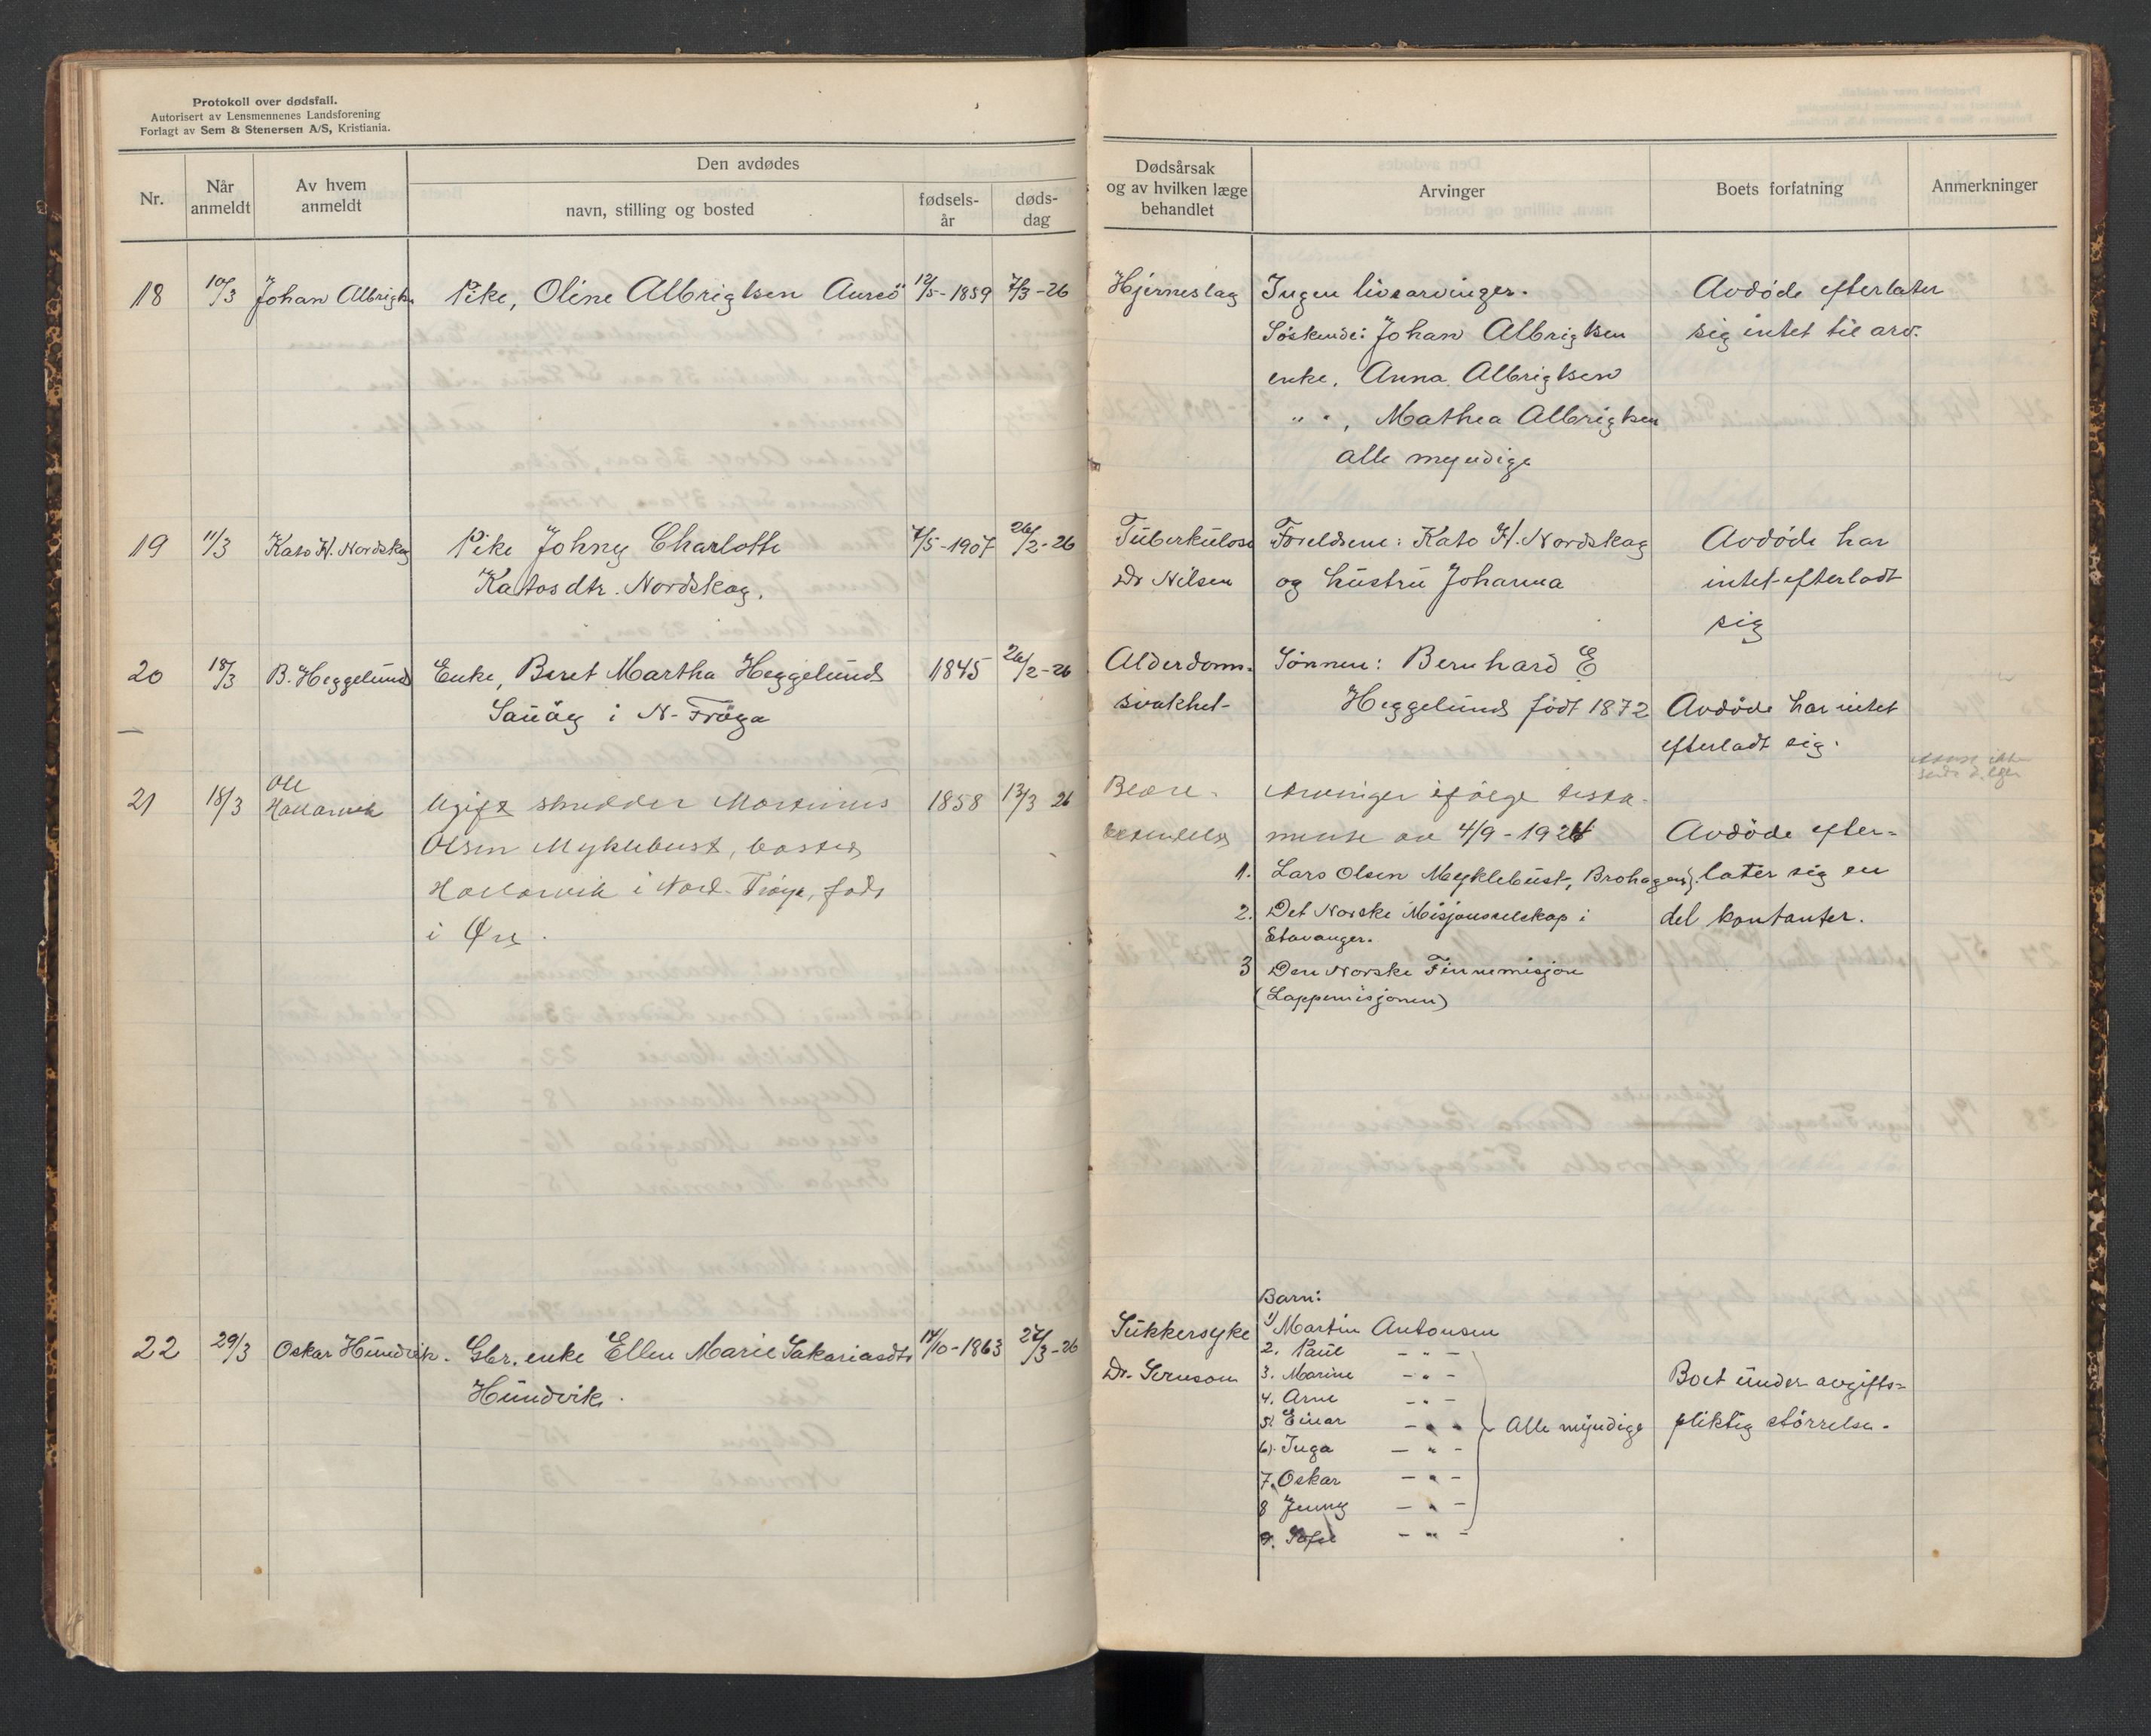 Protokoll over dødsfall.
Autorisert av Lensmennenes Landsforening
Forlagt av Sem & Stenersen A/S, Kristiania.
Nr.
Når anmeldt
Av hvem anmeldt
Den avdødes
navn, stilling og bosted
fødsels-år
døds-dag
Dødsårsak og av hvilken læge behandlet
Arvinger
Boets forfatning
Anmerkninger
18 10/3 Johan Albrigts. Pike, Oline Albrigtsen Aursö 12/5-1859 7/3-26
Hjerneslag
Ingen livsarvinger.
Søskende: Johan Albrigtsen
enke, Anna Albrigtsen
" ", Mathea Albrigtsen
alle myndige
Avdöde efterlater
sig intet til arv.
19 11/3 Kato H. Nordskag Pike Johny Charlotte 7/5-1907 26/2-26
Katosdtr. Nordskag.
Tuberkulose
Dr Nilsen
Foreldrene: Kato H. Nordskag
og hustru Johanna
Avdöde har
intet efterladt
sig
20 18/3 B. Heggelund Enke, Beret Martha Heggelund 1845 26/2-26
Sauöy i N-Fröya
Alderdoms-
svakhet
Sönnen: Bernhard E
Heggelund födt 1872
Avdöde har intet
efterladt sig.
21 18/3 Ole
Hallarvik
Ugift skredder Martinus 1858 13/3 26
Olsen Myklebust, bosted
Hallarvik i Nord-Fröya, föd
i Ørs.
Blære-
Arvinger ifölge testa-
mente av 4/9-1924
1. Lars Olsen Myklebust, Brohagen.
2. Det Norske Misjonsselskap i
Stavanger.
3 Den Norske Finnemisjon
(Lappemisjonen)
Avdöde efter-
later sig en
del kontanter.
22 29/3 Oskar Hundvik. Gbr. enke Ellen Marie Sakariasdtr 14/10-1863 24/3-26
Hundvik.
Sukkersyke
Dr. Sernson
Barn:
1) Martin Antonsen
2. Paul - " -
3. Marine - " -
4. Arne - " -
5. Einar - " -
6). Inga - " -
7. Oskar - " -
8 Jenny - " -
9. - " -
Alle myndige
Boet under avgifts-
pliktig störrelse.